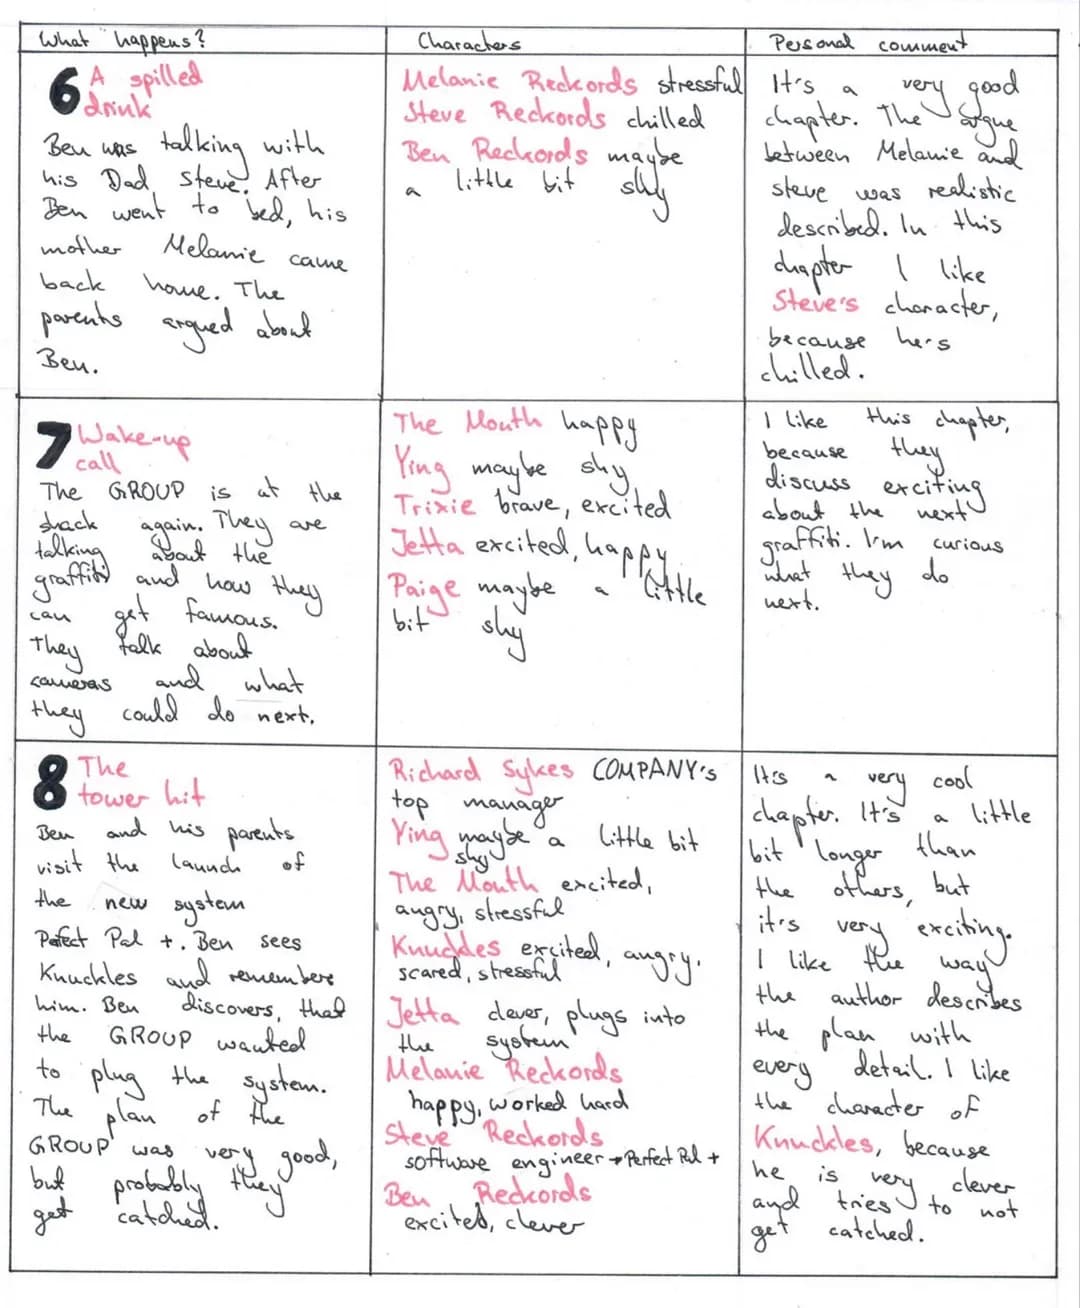 What happens?
Characters
Personal comment
6 A spilled
drink
Ben was talking with
his Dad, Steve. After
Ben went to bed, his
mother Melanie came
back home. The
parents argued about
Ben.
Melanie Reckords stressful
Steve Reckords chilled
Ben Reckords maybe
a little bit shy
It's a very good
chapter. The argue
between Melanie and
steve was realistic
described. In this
chapter I like
Steve's character,
because he's
chilled.
7 Wake-up
call
The GROUP is at the
shack again. They are
talking about the
graffiti and how they
can get famous.
They talk about
cameras and what
they could do next.
The Mouth happy
Ying maybe shy
Trixie brave, excited
Jetta excited, happy
Paige maybe a little
bit shy
I like this chapter,
because they
discuss exciting
about the next
graffiti. I'm curious
what they do
next.
8 The
tower hit
Ben and his parents
visit the launch of
the new system
Pefect Pal +. Ben sees
Knuckles and remembers
him. Ben discovers, that
the GROUP wanted
to plug the system.
The plan of the
GROUP was very good,
but probably they
get catched.
Richard Sykes COMPANY's
top manager
Ying maybe a little bit
shy
The Mouth excited,
angry, stressful
Knuckles excited, angry,
scared, stressful
Jetta clever, plugs into
the system
Melanie Reckords
happy, worked hard
Steve Reckords
software engineer → Perfect Pal +
Ben Reckords
excited, clever
It's a very cool
chapter. It's a little
bit longer than
the others, but
it's very exciting.
I like the way
the author describes
the plan with
every detail. I like
the character of
Knuckles, because
he is very clever
and tries to not
get catched.